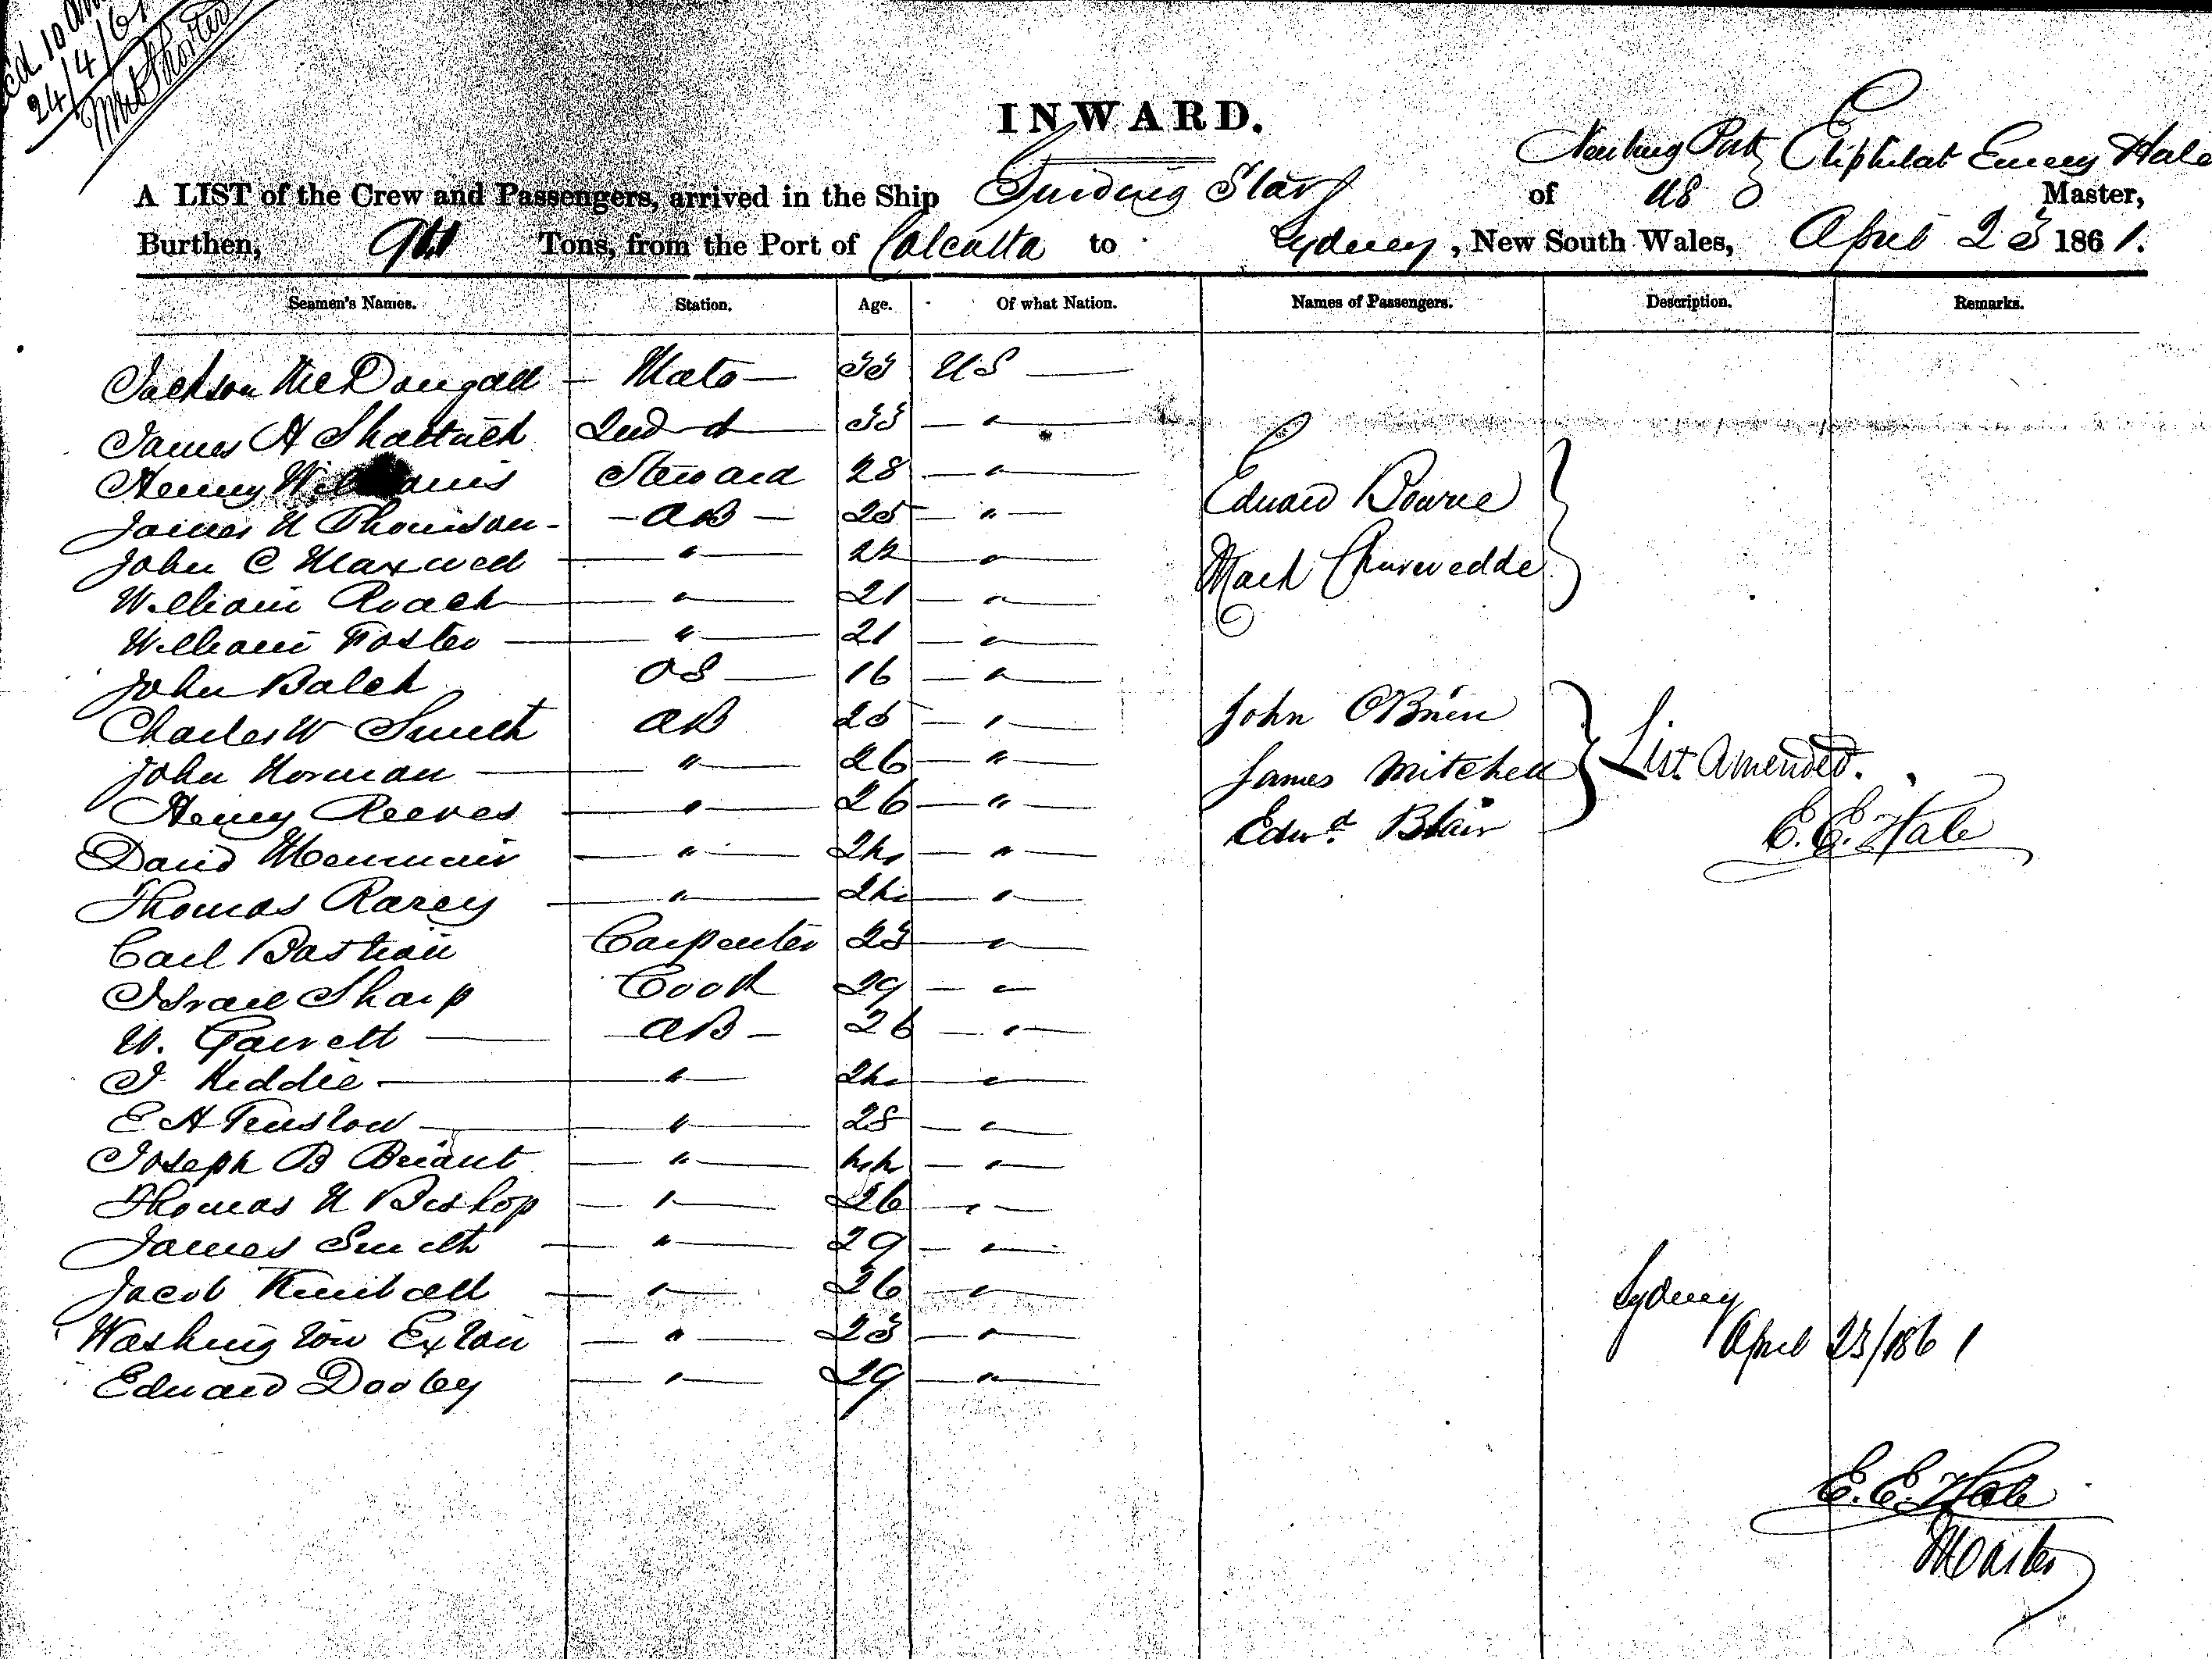 24/4/61
INWARD.
Newbury Port Eliphalet Emery Hale
A LIST of the Crew and Passengers, arrived in the Ship Guiding Star of US Master,
Burthen, Tons, from the Port of Calcutta to Sydney, New South Wales, April 23 1861.
Seamen's Names. Station. Age. Of what Nation. Names of Passengers. Description. Remarks.
Jackson McDougall — Mate — 33 US —
James H Shattuck 2nd d — 33 — " —
Henry Williams Steward 28 — " —
James N Thomson - — AB — 25 — " —
John C Maxwell — " — 22 — " —
William Roach — " — 21 — " —
William Foster — " — 21 — " —
John Balch OS — 16 — " —
Charles W Smith AB 25 — " —
John Norman — " — 26 — " —
Henry Reeves — " — 26 — " —
David — " — 24 — " —
Thomas Rarey — " — 24 — " —
Carl Bastian Carpenter 23 — " —
Israel Sharp Cook 29 — " —
W. Garrett — AB — 26 — " —
J Keddie — " — 24 — " —
E. H — " — 28 — " —
Joseph B Briant — " — 44 — " —
Thomas N Bishop — " — 26 — " —
James Smith — " — 29 — " —
Jacob Kimball — " — 26 — " —
Washington Exton — " — 23 — " —
Edward Dooley — " — 29 — " —
Edward Bowne
Mack
John O'Brien
James Mitchell
Edwd. Blair
List Amended.
E. E. Hale
Sydney
April 23/1861
E. E. Hale
Master